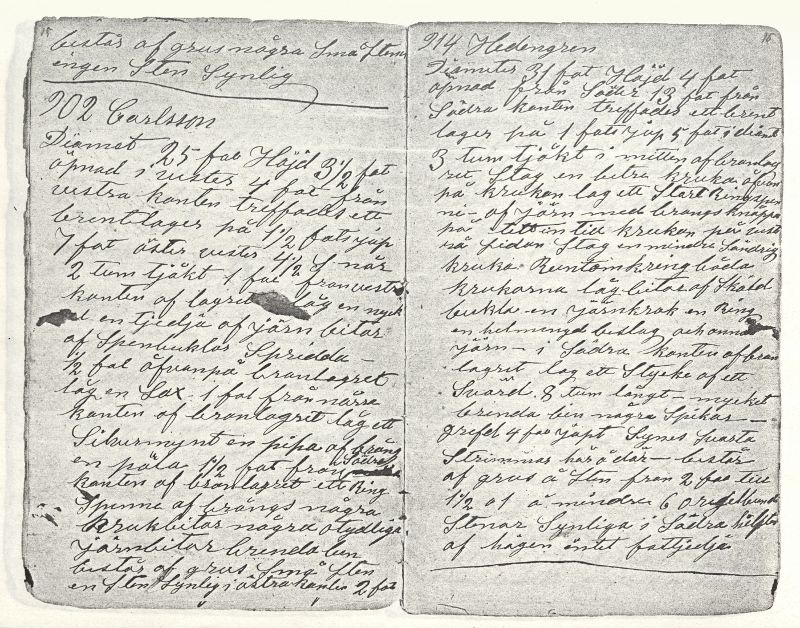 15
består af grus några Små Stenar
engen Sten Synlig
902 Carlsson
Diamet 25 fot Höjd 3 1/2 fot
öpnad i vester 4 fot från
vestra kanten treffades ett
brentlager på 1 1/2 fots jup
7 fot öster vester 4 1/2 S när
2 tum tjókt 1 fot från vestr
kanten of lagret låg en nyck
el en tjedja af järn bitar
af Spenbuklor Spridda —
1/2 fot öfvanpå branlagret
låg en Sax. 1 fot från nörra
kanten of branlagret låg ett
Silvermynt en pipa af brång
en påla 1 1/2 fot från Södra
kanten of branlagret ett Ring
Spenne af brångs några
krukbitar några otydliga
järnbitar brenda ben
består af grus Små Sten
en Sten Synlig i östra kanten 2 fot
15
914 Hedengren
Diameter 31 fot Höjd 4 fot
öpnad från Söder 13 fot från
Södra kanten treffades ett brent
lager på 1 fots jup 5 fot i diamt
3 tum tjókt i mitten af branlag
ret Stog en betre kruka öfvan
på krukan låg ett Stort Ringspen
ne of järn med brongs knappa
på titt in till krukan på vest
ra sidan Stog en mindre Söndrig
kruka Runtomkring båda
krukorna låg bitar af Sköld
bukla en järnkrok en Ring
en helmengd beslag och annat
järn — i Södra kanten af bran
lagret låg ett Stycke af ett
Svärd 8 tum långt — mycket
brenda ben några Spikar —
grefd 4 fot jupt Synes Svarta
Strimmor här o där — består
af grus å Sten från 2 fot till
1 1/2 o 1 å mindre 6 oregelbundn
Stenar Synliga i Södra helften
af högen öntet fottjedja